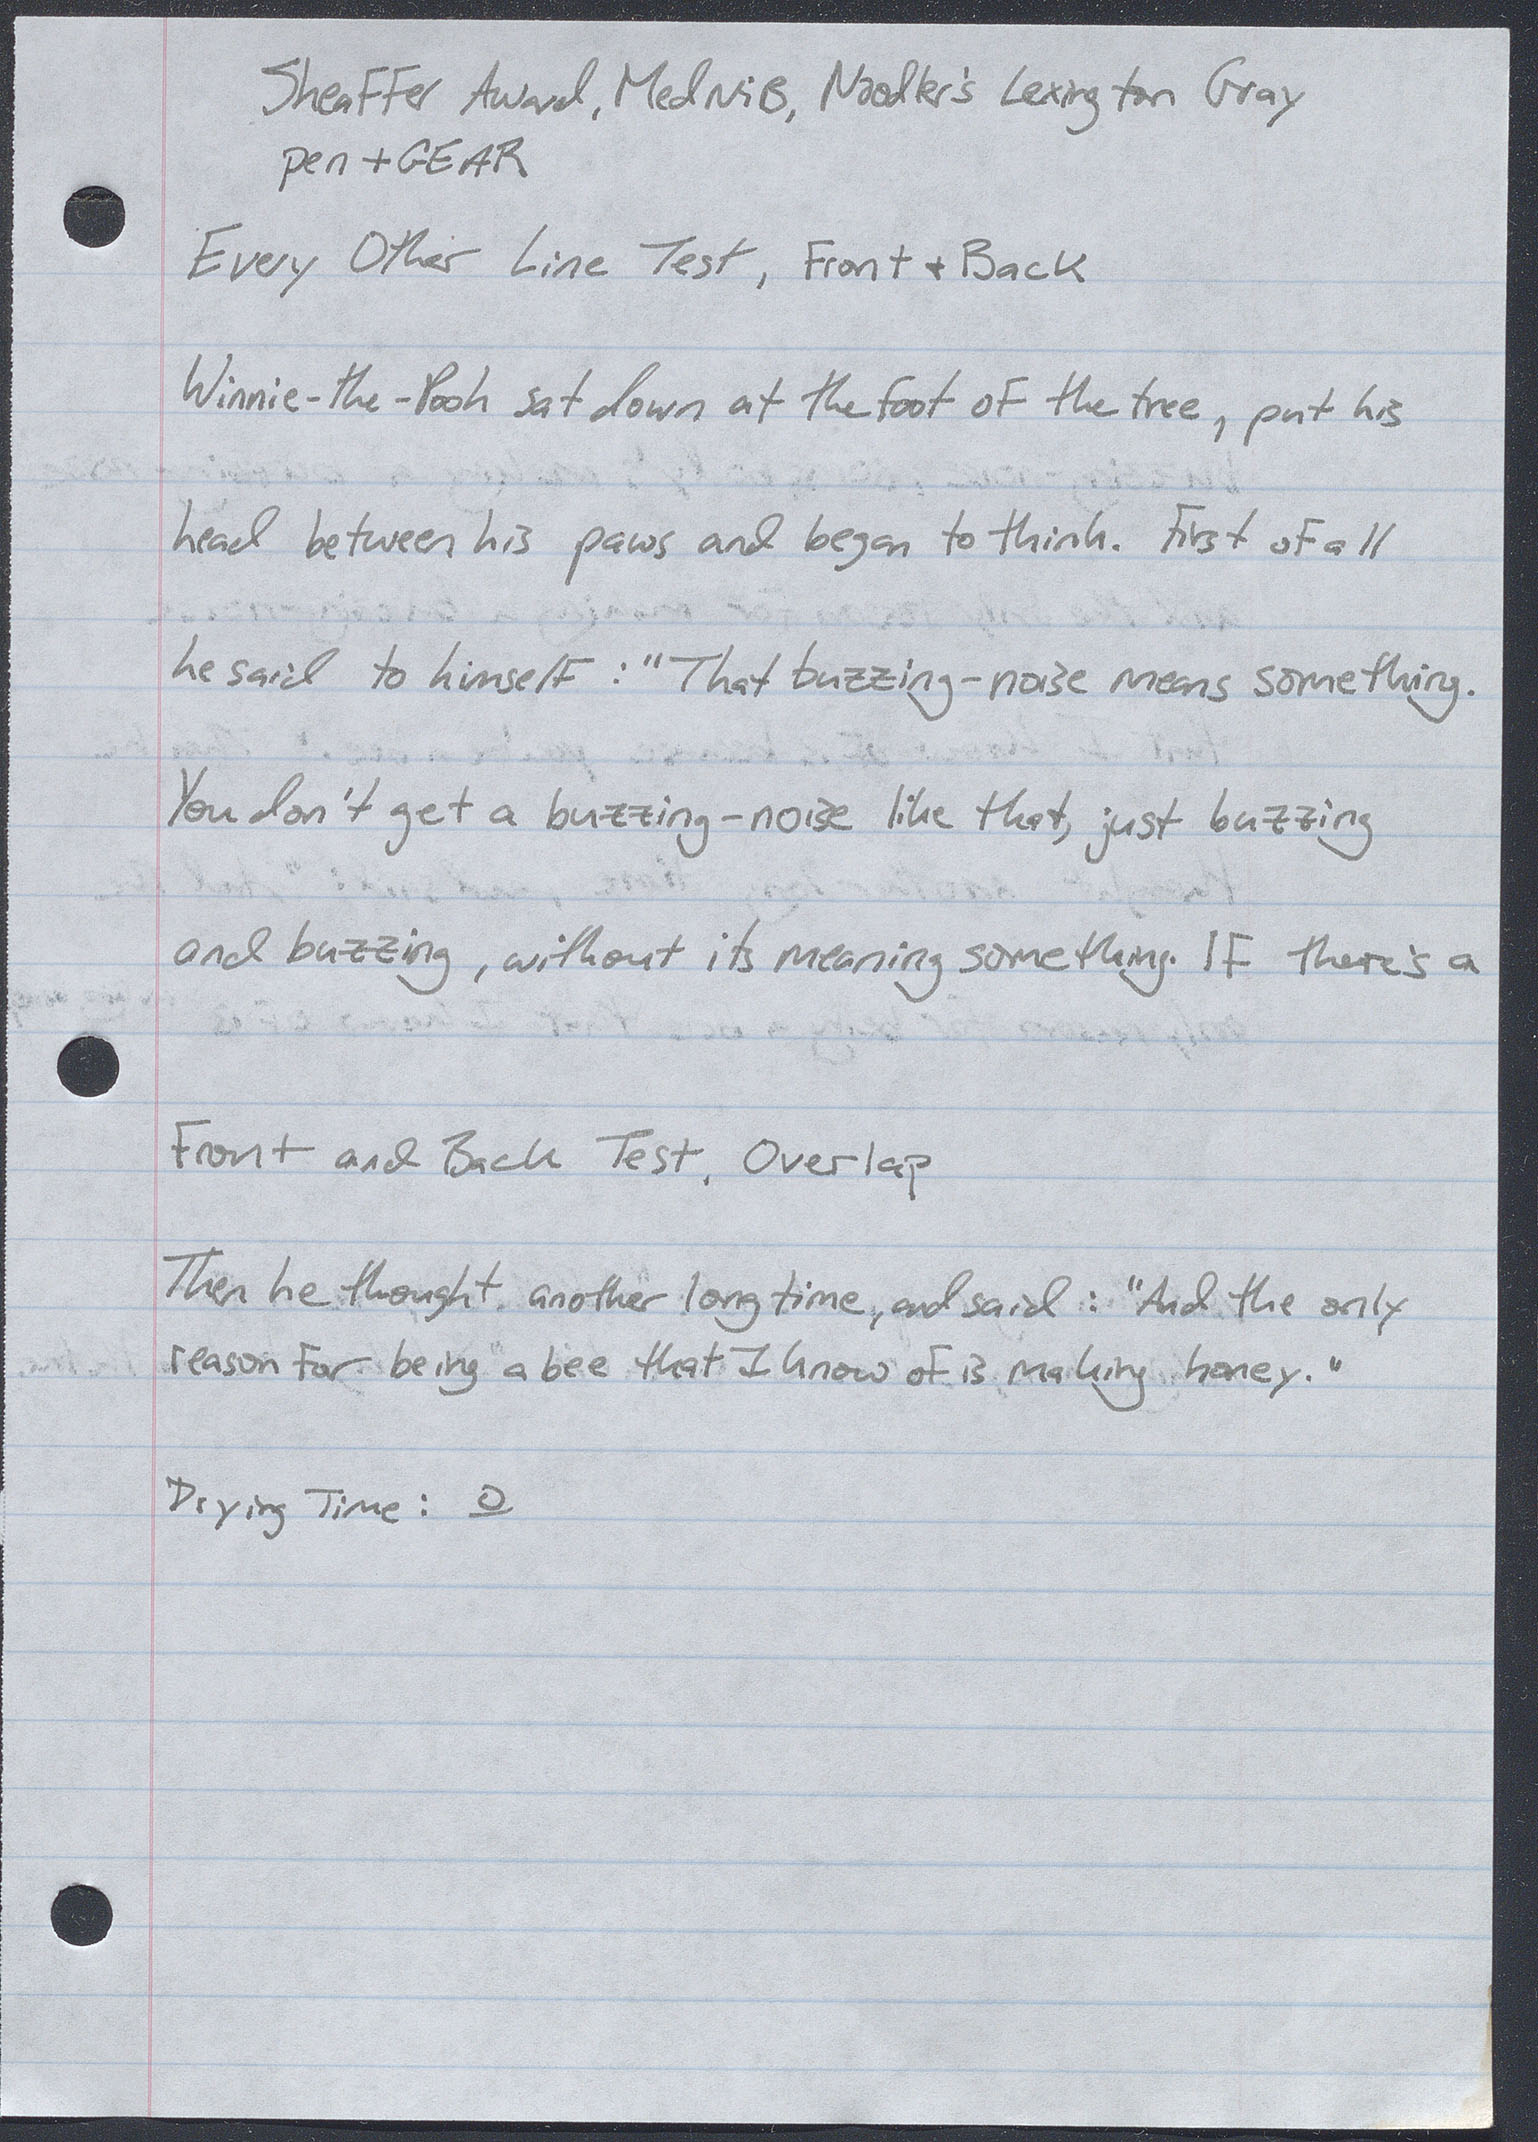 Sheaffer Award, Med Nib, Noodler's Lexington Gray
pen + GEAR
Every Other Line Test, Front + Back
Winnie-the-Pooh sat down at the foot of the tree, put his
head between his paws and began to think. First of all
he said to himself : "That buzzing-noise means something.
You don't get a buzzing-noise like that, just buzzing
and buzzing, without its meaning something. If there's a
Front and Back Test, Overlap
Then he thought another long time, and said : "And the only
reason for being a bee that I know of is making honey."
Drying Time : 0